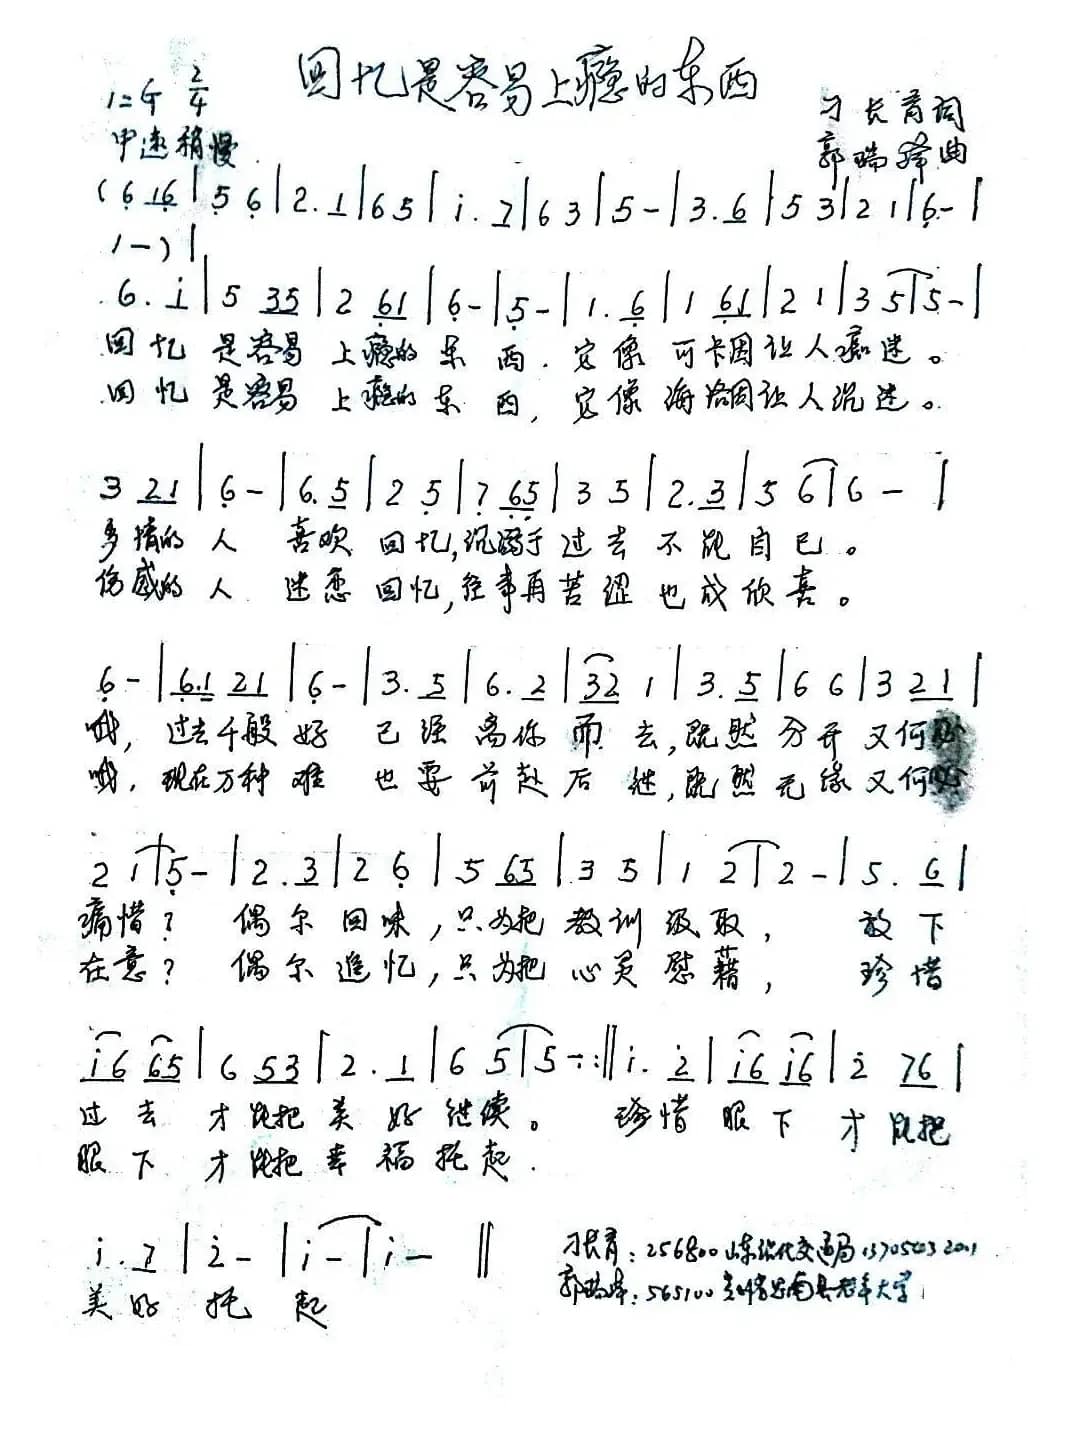 回忆是容易上瘾的东西
1=G 2/4
中速稍慢
刁长育词
郭瑞择曲
(6 16|5 6|2. 1|6 5|i. 7|6 3|5 -|3. 6|5 3|2 1|6 -|
1 -)|
6. i|5 35|2 61|6 -|5 -|1. 6|1 61|2 1|3 5|5 -|
回忆是容易上瘾的东西.它像可卡因让人痴迷。
回忆是容易上瘾的东西,它像海洛因让人沉迷。
3 21|6 -|6. 5|2 5|7 65|3 5|2. 3|5 6|6 -|
多情的人 喜欢回忆,沉溺于过去不能自已。
伤感的人 迷恋回忆,往事再苦涩也成欣喜。
6 -|6.1 21|6 -|3. 5|6. 2|32 1|3. 5|6 6|3 21|
哦,过去千般好 已经离你而去,既然分开又何必
哦,现在万种难 也要前赴后继,既然无缘又何必
2 1|5 -|2. 3|2 6|5 65|3 5|1 2|2 -|5. 6|
痛惜? 偶尔回味,只为把教训汲取, 放下
在意? 偶尔追忆,只为把心灵慰藉, 珍惜
i6 65|6 53|2. 1|6 5|5 -:‖i. 2|i6 i6|2 76|
过去 才能把美好继续。 珍惜眼下 才能把
眼下 才能把幸福托起.
i. 7|2 -|i -|i -‖
美好托起
刁长育:256800山东沾化交通局
郭瑞:565100贵州省思南县老年大学